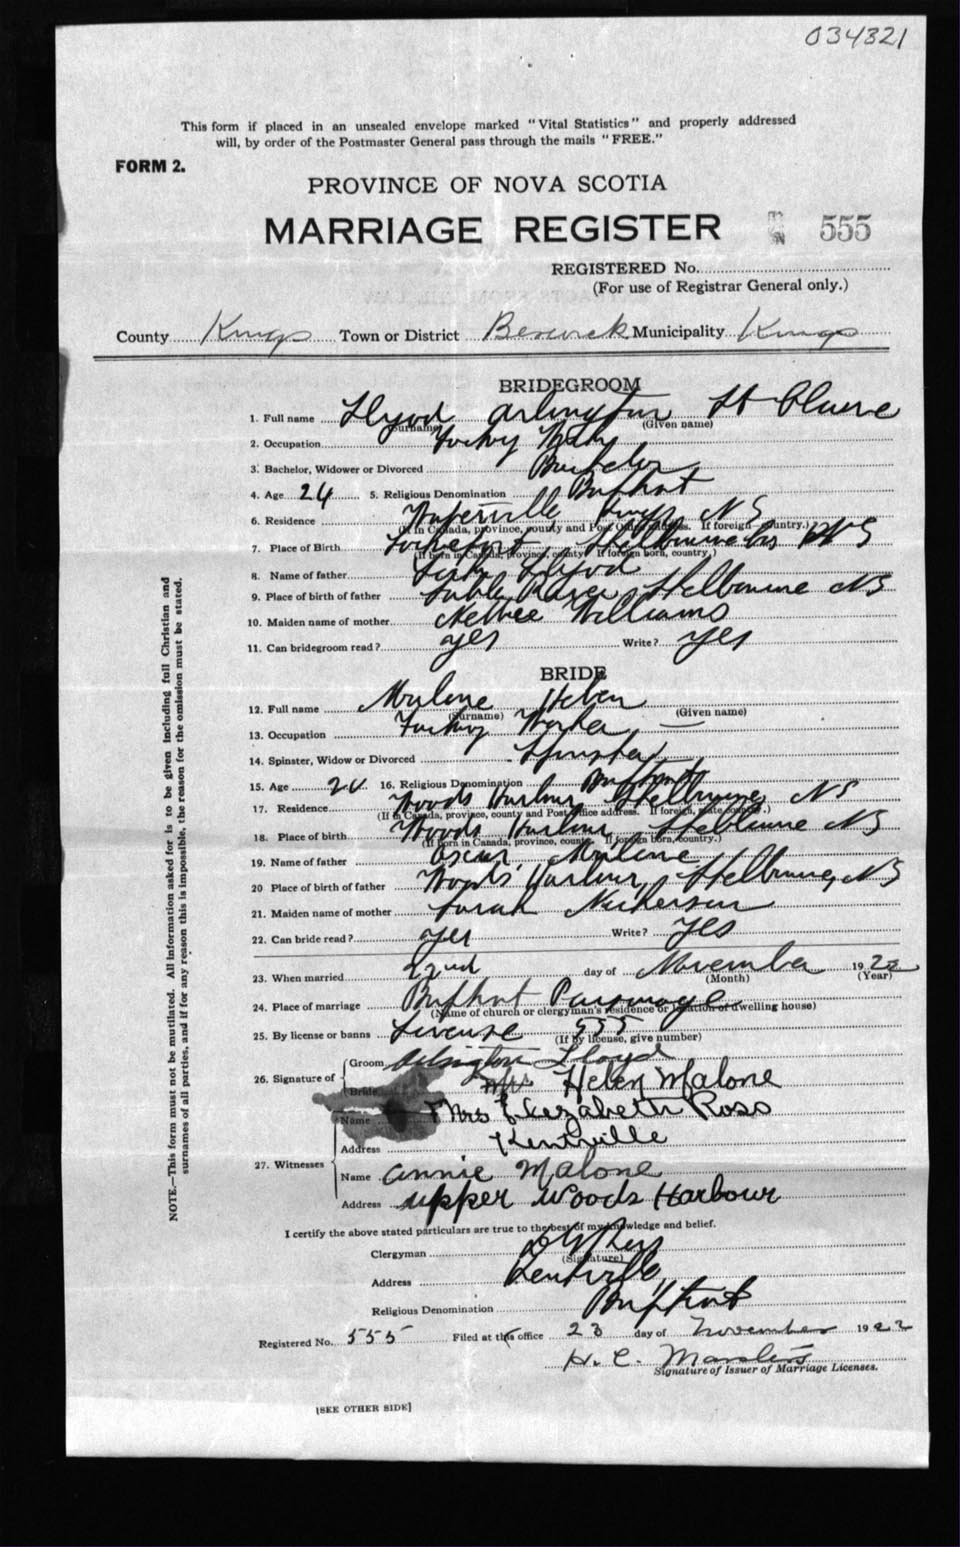 034321
This form if placed in an unsealed envelope marked "Vital Statistics" and properly addressed
will, by order of the Postmaster General pass through the mails "FREE."
FORM 2.
PROVINCE OF NOVA SCOTIA
MARRIAGE REGISTER 555
REGISTERED No.
(For use of Registrar General only.)
County Kings Town or District Berwick Municipality Kings
BRIDEGROOM
1. Full name Llyod Arlington St Claire
(Surname) (Given name)
2. Occupation
3. Bachelor, Widower or Divorced Bachelor
4. Age 24 5. Religious Denomination Baptist
6. Residence Kings NS
(If in Canada, province, county and Post Office address. If foreign country.)
7. Place of Birth Lockeport Shelburne Co NS
(If born in Canada, province, county. If foreign born, country.)
8. Name of father Llyod
9. Place of birth of father Sable River Shelburne NS
10. Maiden name of mother Nettie Williams
11. Can bridegroom read? yes Write? yes
BRIDE
12. Full name Mulone Helen
(Surname) (Given name)
13. Occupation Worker
14. Spinster, Widow or Divorced Spinster
15. Age 16. Religious Denomination Baptist
17. Residence Woods Harbour Shelburne NS
(If in Canada, province, county and Post Office address. If foreign, state country.)
18. Place of birth Woods Harbour Shelburne NS
(If born in Canada, province, county. If foreign born, country.)
19. Name of father Oscar Mulone
20 Place of birth of father Woods Harbour, Shelburne, NS
21. Maiden name of mother Sarah Nickerson
22. Can bride read? yes Write? yes
23. When married 22nd day of November 1922
(Month) (Year)
24. Place of marriage Baptist Parsonage
(Name of church or clergyman's residence or location of dwelling house)
25. By license or banns License 555
(If by license, give number)
26. Signature of Groom Arlington Lloyd
Bride Helen Malone
27. Witnesses Name Mrs Elezabeth Ross
Address Kentville
Name annie Malone
Address upper Woods Harbour
I certify the above stated particulars are true to the best of my knowledge and belief.
Clergyman
(Signature)
Address Kentville,
Religious Denomination Baptist
Registered No. 555 Filed at this office 23 day of November 1922
H. C.
Signature of Issuer of Marriage Licenses.
[SEE OTHER SIDE]
NOTE.—This form must not be mutilated. All information asked for is to be given including full Christian and
surnames of all parties, and if for any reason this is impossible, the reason for the omission must be stated.